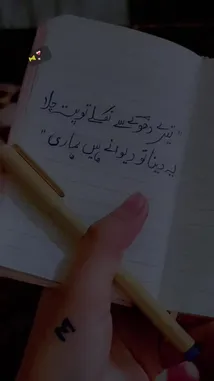 "تیرے دھوکے سے نکلے تو پتہ چلا
یہ دنیا تو دیوانے ہیں ہماری"
M